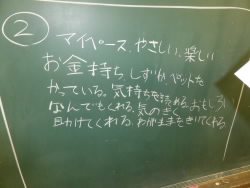 ②
マイペース、やさしい、楽しい
お金持ち しずか ペットを
かっている。気持ちを読める。おもしろい
なんでもくれる。気のきく
助けてくれる。わがままをきいてくれる